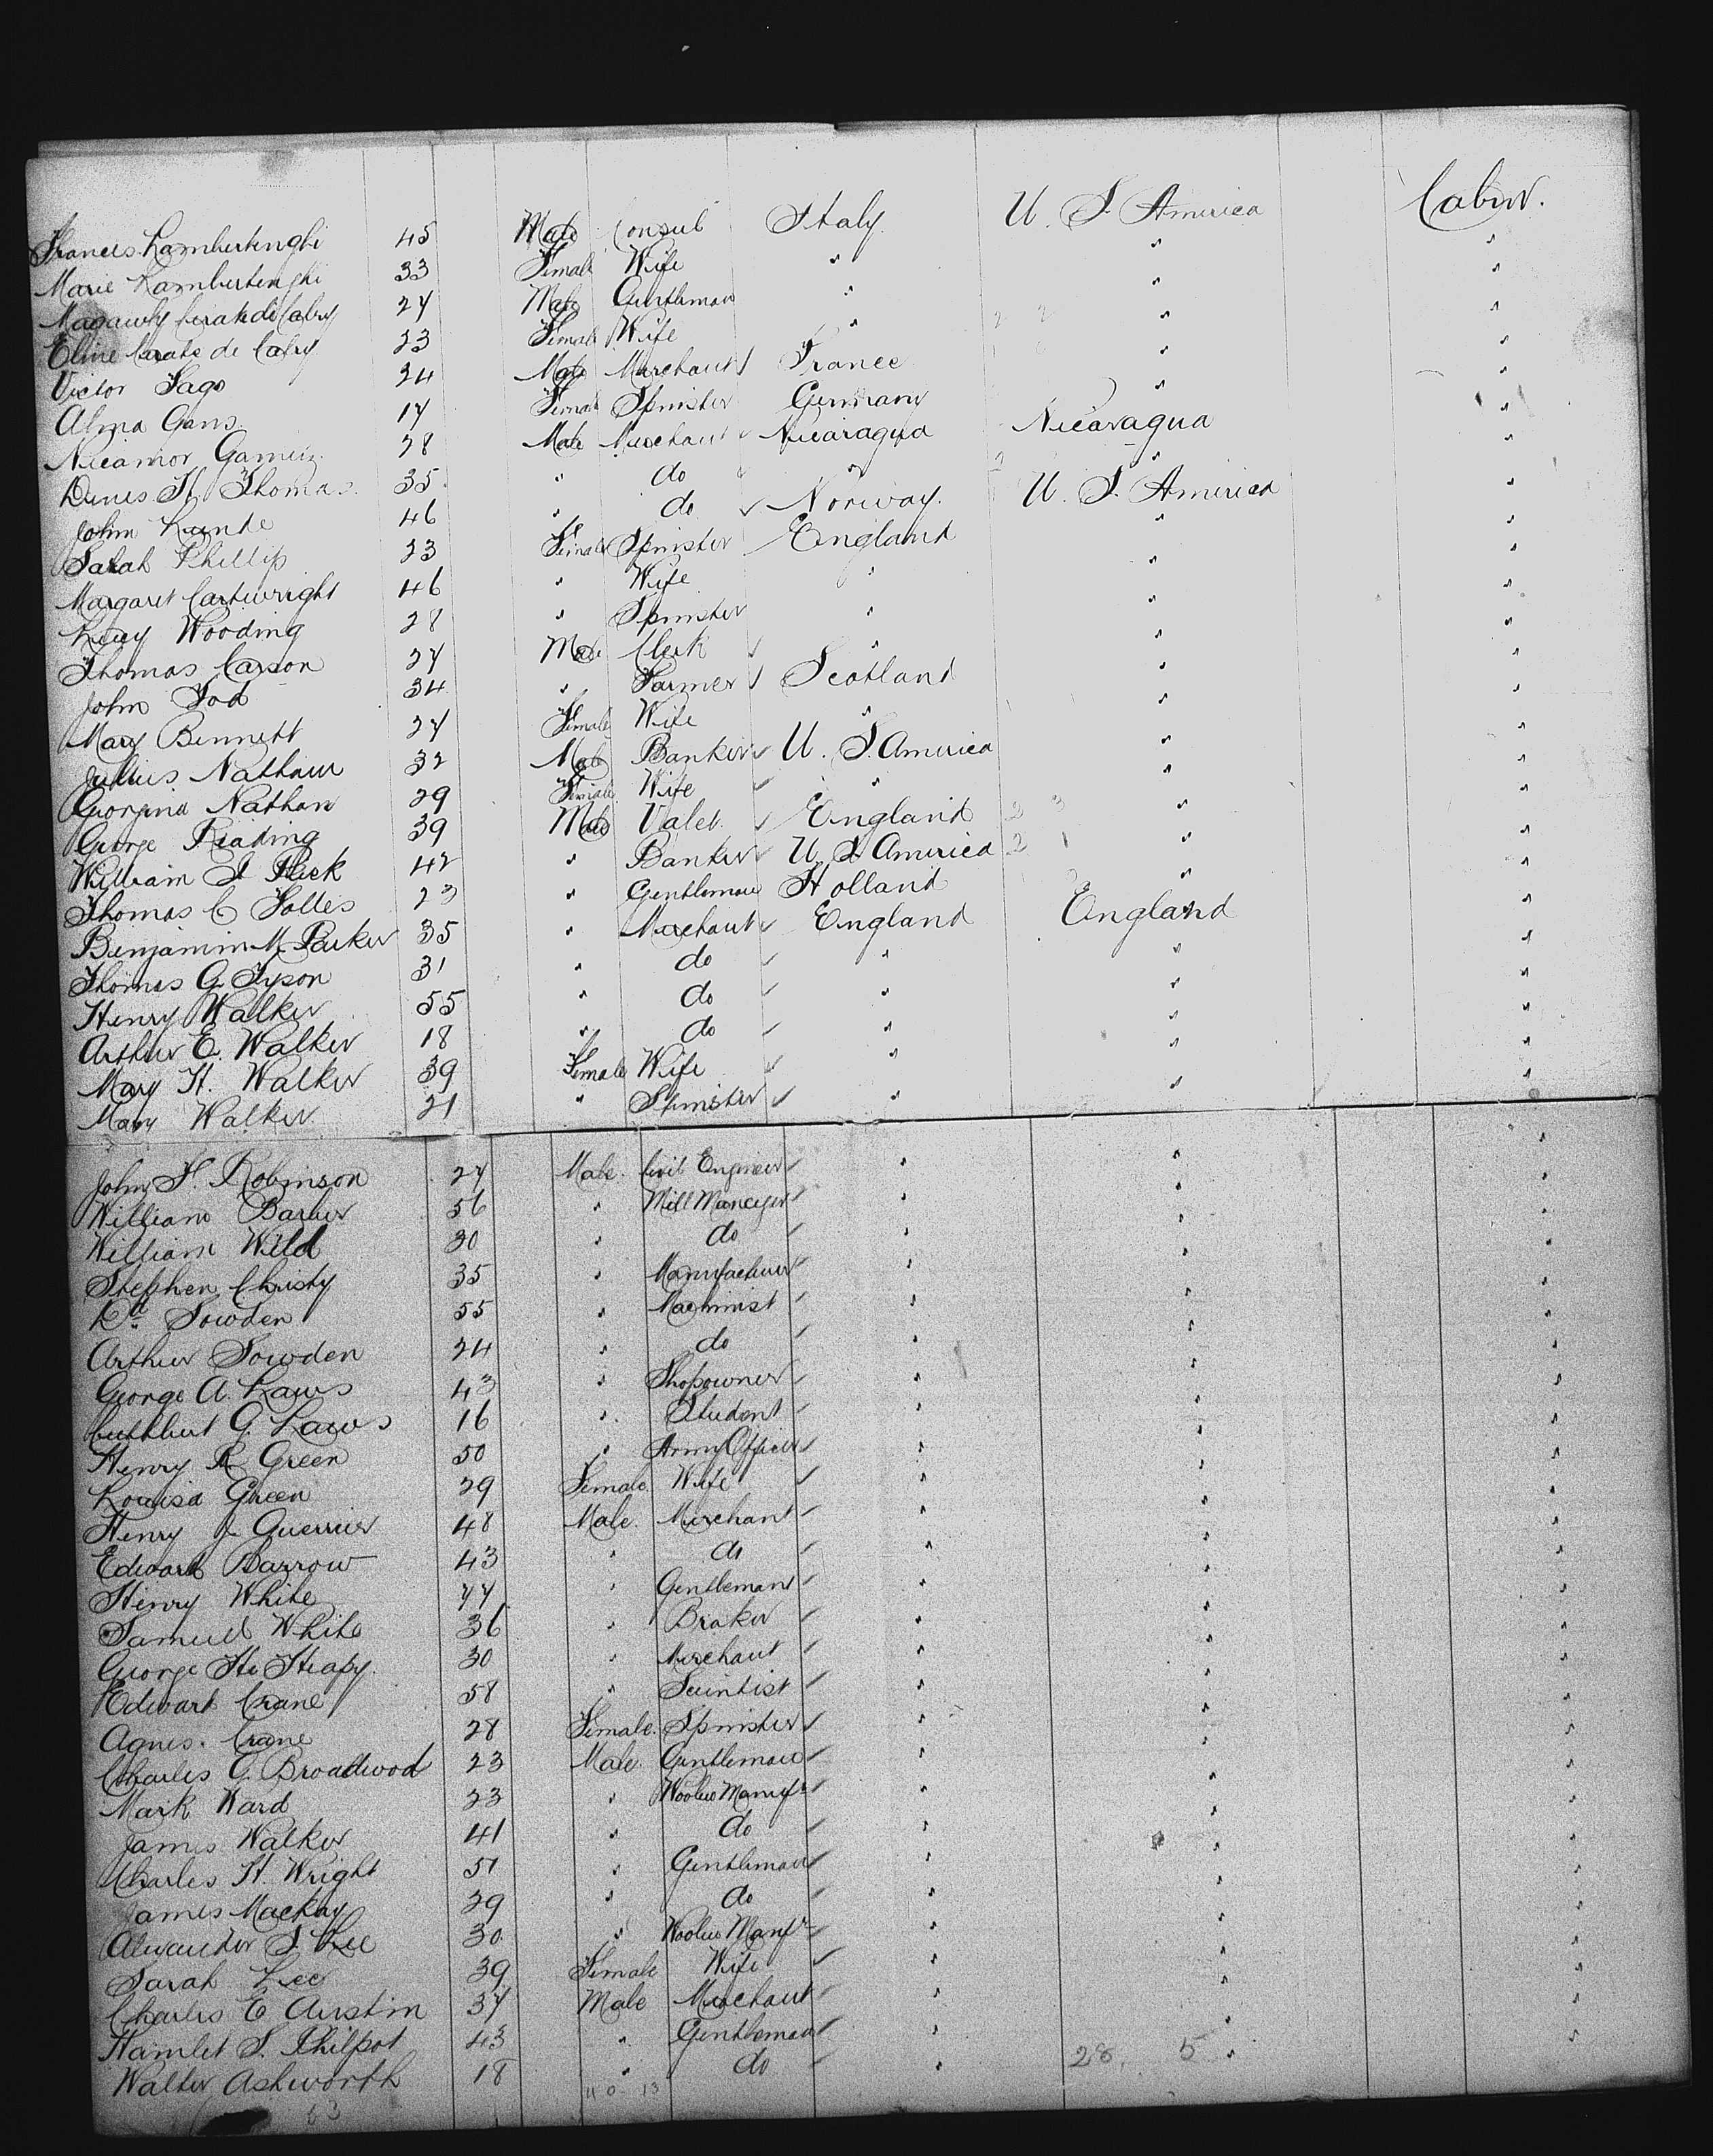 Frances Lambertenghi 45 Male Consul Italy U. S. America Cabin.
Marie Lambertenghi 33 Female Wife " " "
Magawly Cerati de Calry 27 Male Gentleman " " "
Eline Cerati de Calry 23 Female Wife " " "
Victor Sago 24 Male Merchant France " "
Alma Gans 17 Female Spinster Germany " "
Nicamor Gamiez 28 Male Merchant Nicaragua Nicaragua "
Dunes H. Thomas 35 " do " " "
John Lunde 46 " do Norway. U. S. America "
Sarah Phillip 23 Female Spinster England " "
Margaret Cartwright 46 " Wife " " "
Lucy Wooding 28 " Spinster " " "
Thomas Carson 27 Male Clerk " " "
John Tod 34 " Farmer Scotland " "
Mary Bennett 27 Female Wife " " "
Julius Nathan 32 Male Banker U. S. America " "
Georgina Nathan 29 Female Wife " " "
George Reading 39 Male Valet England " "
William I Flick 42 " Banker U. S. America " "
Thomas C Solles 23 " Gentleman Holland " "
Benjamin M. Parker 35 " Merchant England England "
Thomas G. Tyson 31 " do " " "
Henry Walker 55 " do " " "
Arthur E. Walker 18 " do " " "
Mary H. Walker 39 Female Wife " " "
Mary Walker 21 " Spinster " " "
John F. Robinson 27 Male. Civil Engineer " " "
William Barber 56 " Mill Manager " " "
William Wild 30 " do " " "
Stephen Christy 35 " Manufacturer " " "
Rd. Sowden 55 " Machinist " " "
Arthur Sowden 24 " do " " "
George A. Laws 43 " Shipowner " " "
Cuthbert G. Laws 16 " Student " " "
Henry R Green 50 " Army Officer " " "
Louisa Green 29 Female. Wife " " "
Henry J. Guerrier 48 Male. Merchant " " "
Edward Barrow 43 " do " " "
Henry White 77 " Gentleman " " "
Samuel White 36 " Broker " " "
George H. Heapy. 30 " Merchant " " "
Edward Crane 58 " Scientist " " "
Agnes. Crane 28 Female. Spinster " " "
Charles G. Broadwood 23 Male. Gentleman " " "
Mark Ward 23 " Woolen Manufr " " "
James Walker 41 " do " " "
Charles H. Wright 51 " Gentleman " " "
James Mackay 29 " do " " "
Alexander S. Lee 30 " Woolen Manfr " " "
Sarah Lee 39 Female Wife " " "
Charles E Austin 37 Male Merchant " " "
Hamlet S. Philpot 43 " Gentleman " " "
Walter Ashworth 18 " do " 28. 5 " "
63 11 0 13